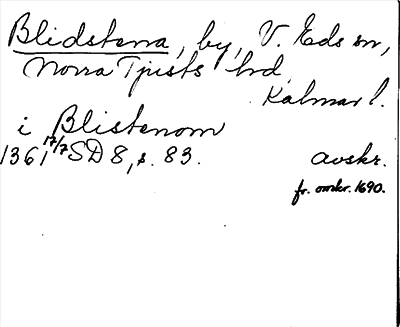 Blidstena, by, V. Eds sn,
Norra Tjusts hd,
Kalmar l.
i Blistenom
1361 17/7 SD 8, s. 83. avskr.
fr. omkr. 1690.